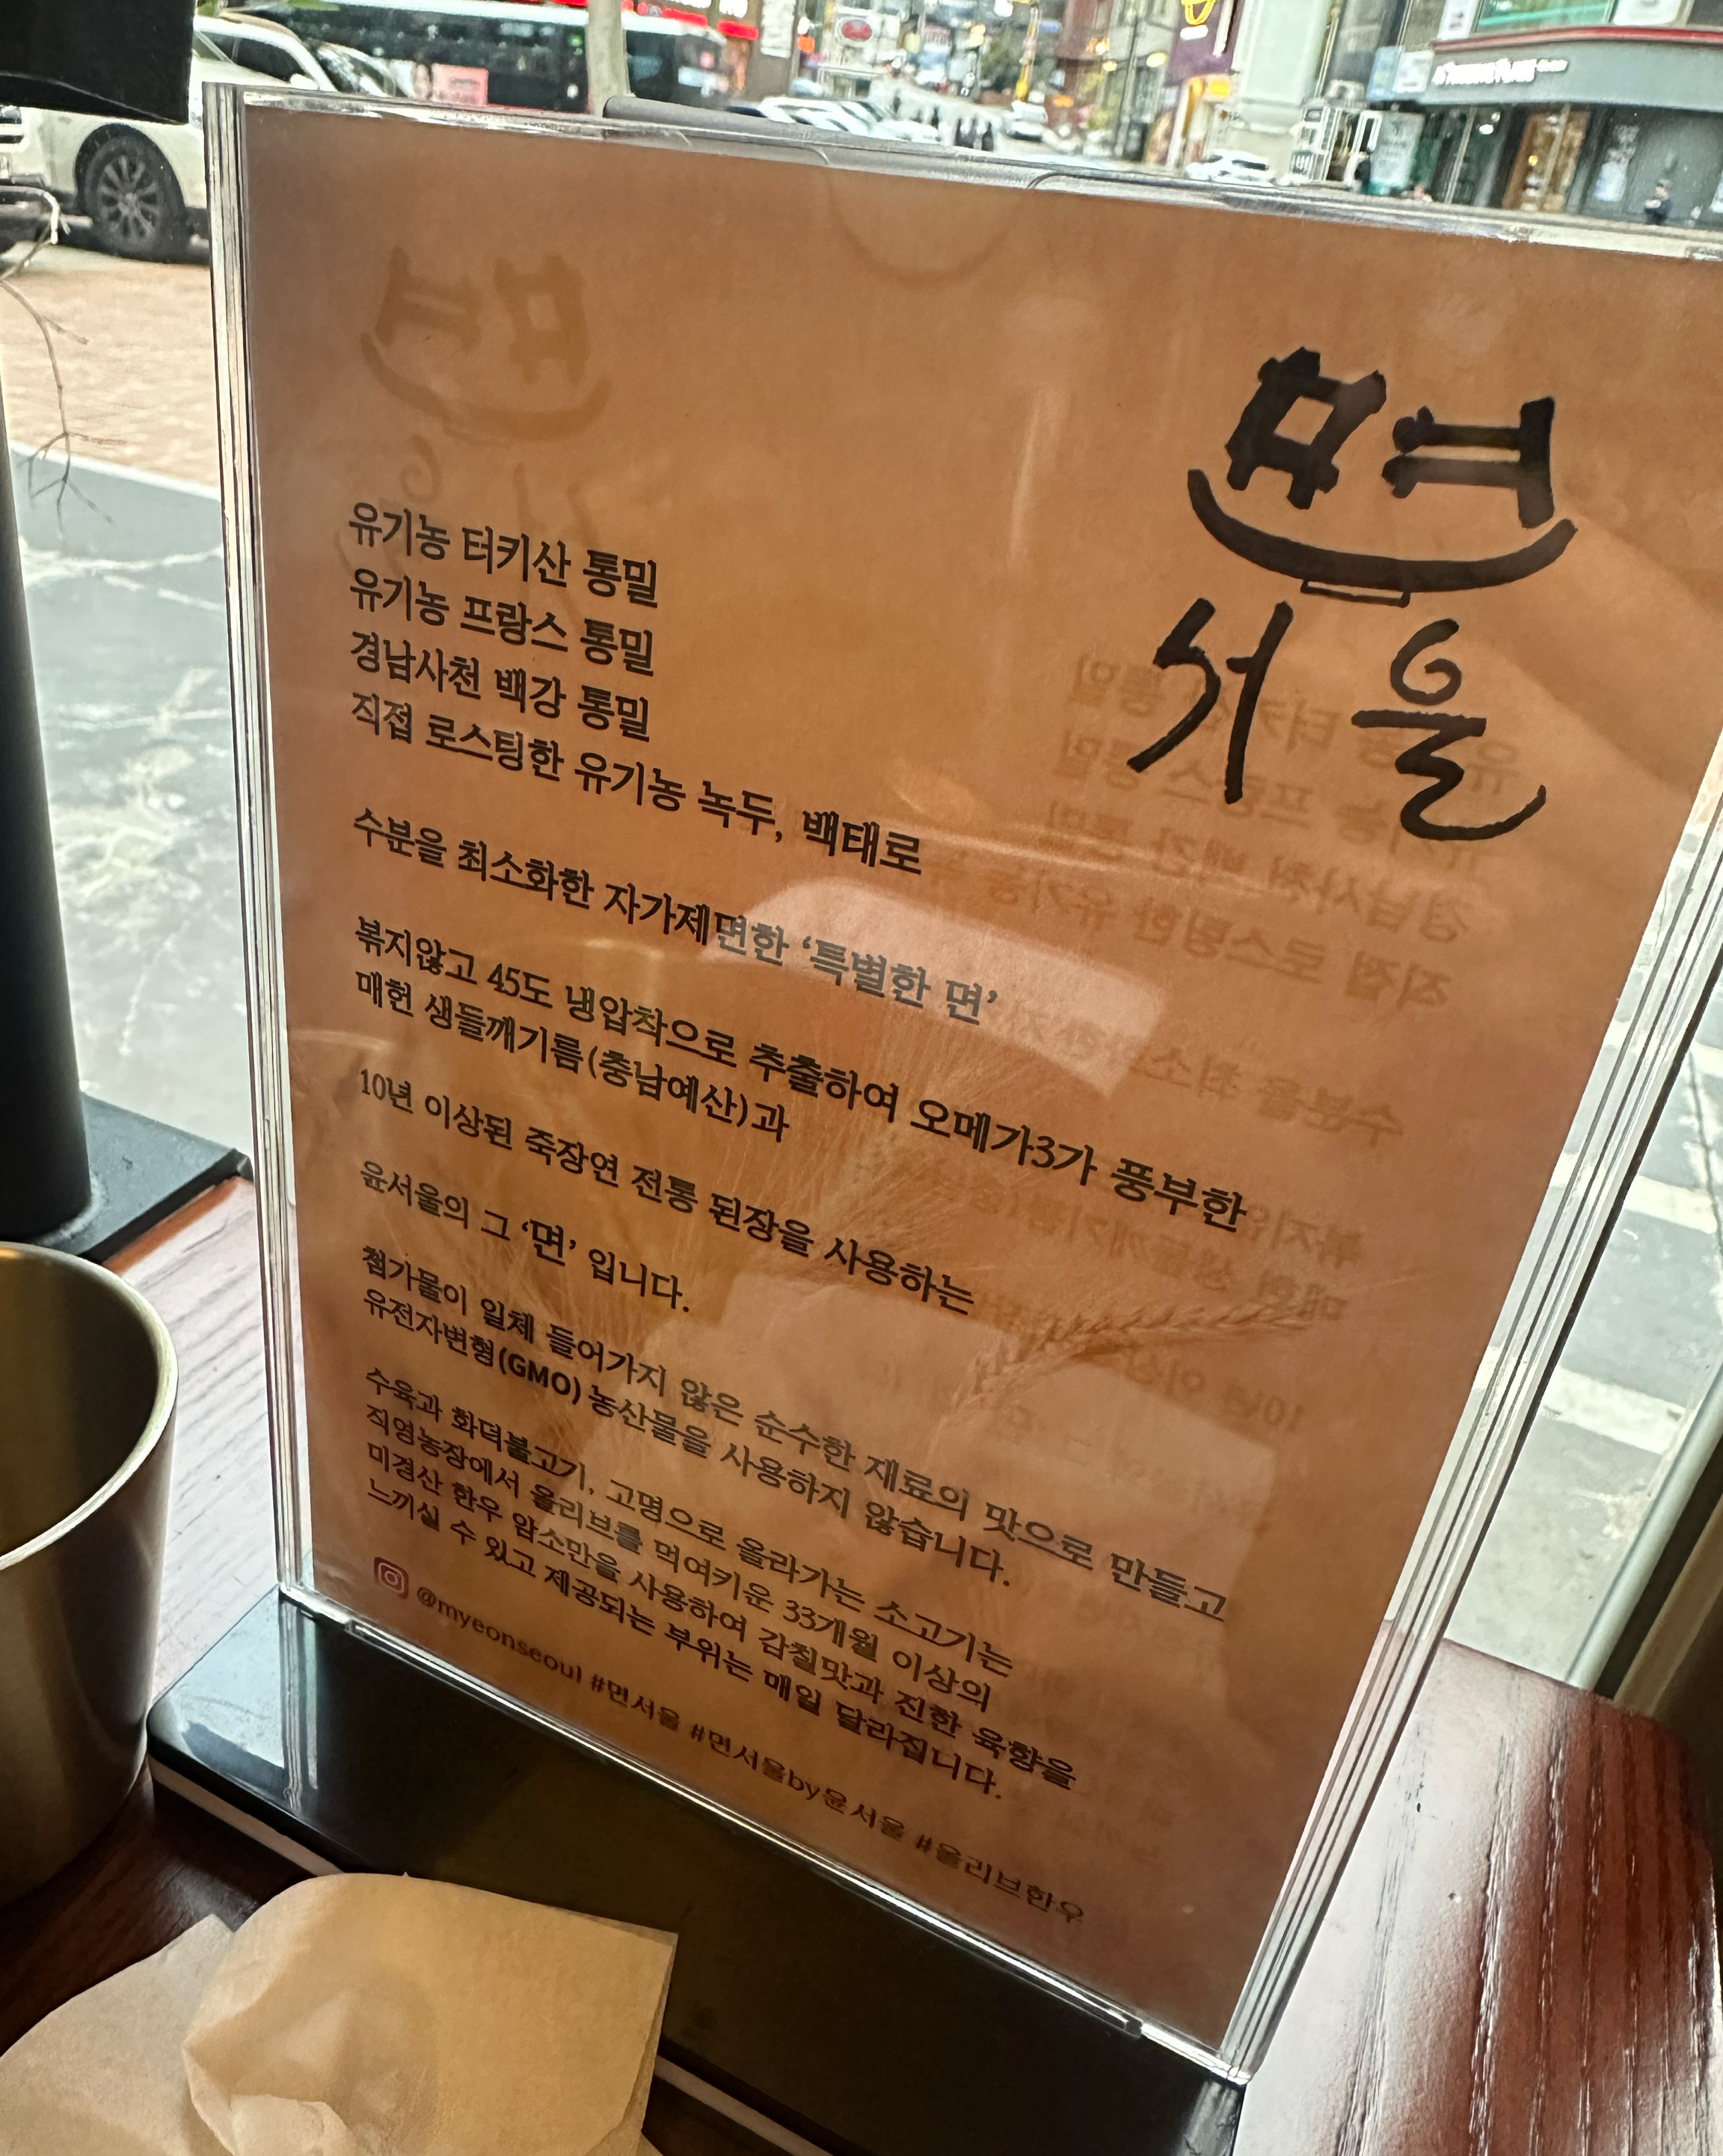 면
서울
유기농 터키산 통밀
유기농 프랑스 통밀
경남사천 백강 통밀
직접 로스팅한 유기농 녹두, 백태로
수분을 최소화한 자가제면한 ‘특별한 면’
볶지않고 45도 냉압착으로 추출하여 오메가3가 풍부한
매헌 생들깨기름(충남예산)과
10년 이상된 죽장연 전통 된장을 사용하는
윤서울의 그 ‘면’ 입니다.
첨가물이 일체 들어가지 않은 순수한 재료의 맛으로 만들고
유전자변형(GMO) 농산물을 사용하지 않습니다.
수육과 화덕불고기, 고명으로 올라가는 소고기는
직영농장에서 올리브를 먹여키운 33개월 이상의
미경산 한우 암소만을 사용하여 감칠맛과 진한 육향을
느끼실 수 있고 제공되는 부위는 매일 달라집니다.
@myeonseoul #면서울 #면서울by윤서울 #올리브한우